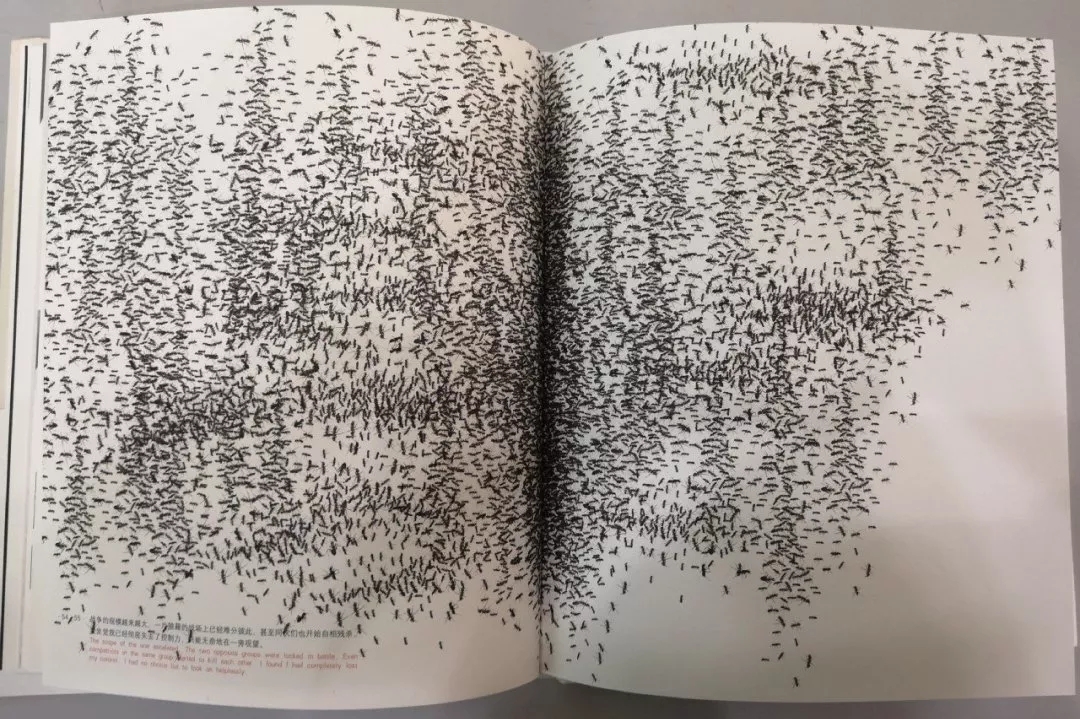 54-55 战争的规模越来越大，一片狼藉的战场上已经难分彼此，甚至同们也开始自相残杀。
我已经彻底失去了控制力，只能无奈地在一旁观望。
The scope of the war escalated. The two opposite groups were locked in battle. Even
compatriots in the same group started to kill each other. I found I had completely lost
my control. I had no choice but to look on helplessly.